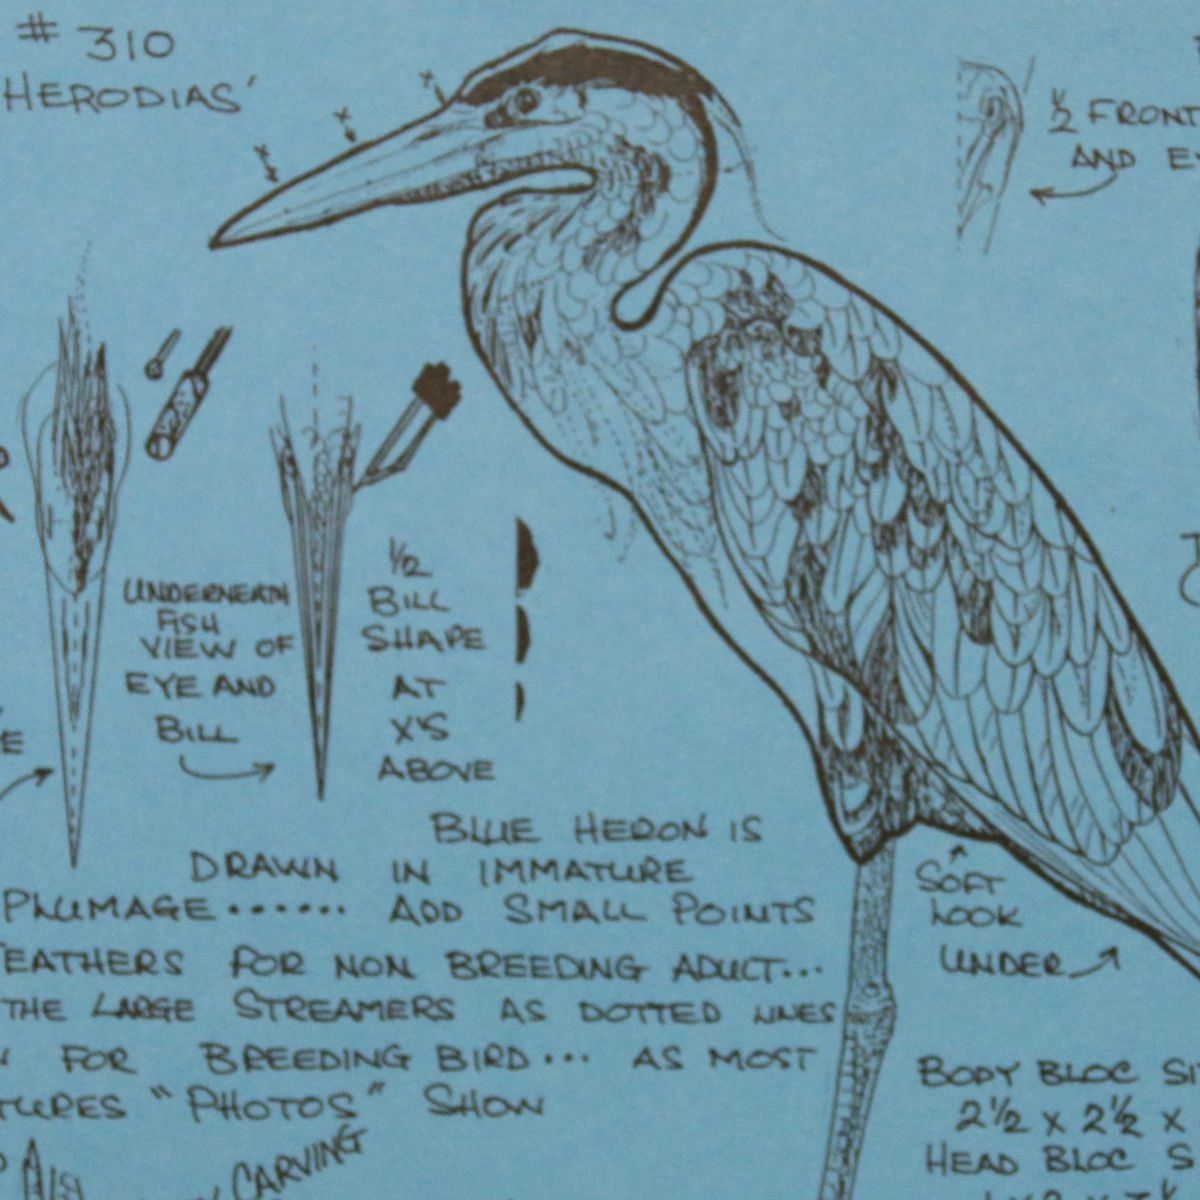 # 310
HERODIAS'
½ FRONT
AND
UNDERNEATH
FISH
VIEW OF
EYE AND
BILL
½
BILL
SHAPE
AT
X'S
ABOVE
BLUE HERON IS
DRAWN IN IMMATURE
PLUMAGE...... ADD SMALL POINTS
EATHERS FOR NON BREEDING ADULT...
THE LARGE STREAMERS AS DOTTED LINES
FOR BREEDING BIRD... AS MOST
TURES "PHOTOS" SHOW
SOFT
LOOK
UNDER
BODY BLOC SI
2½ x 2½ x
HEAD BLOC S
CARVING